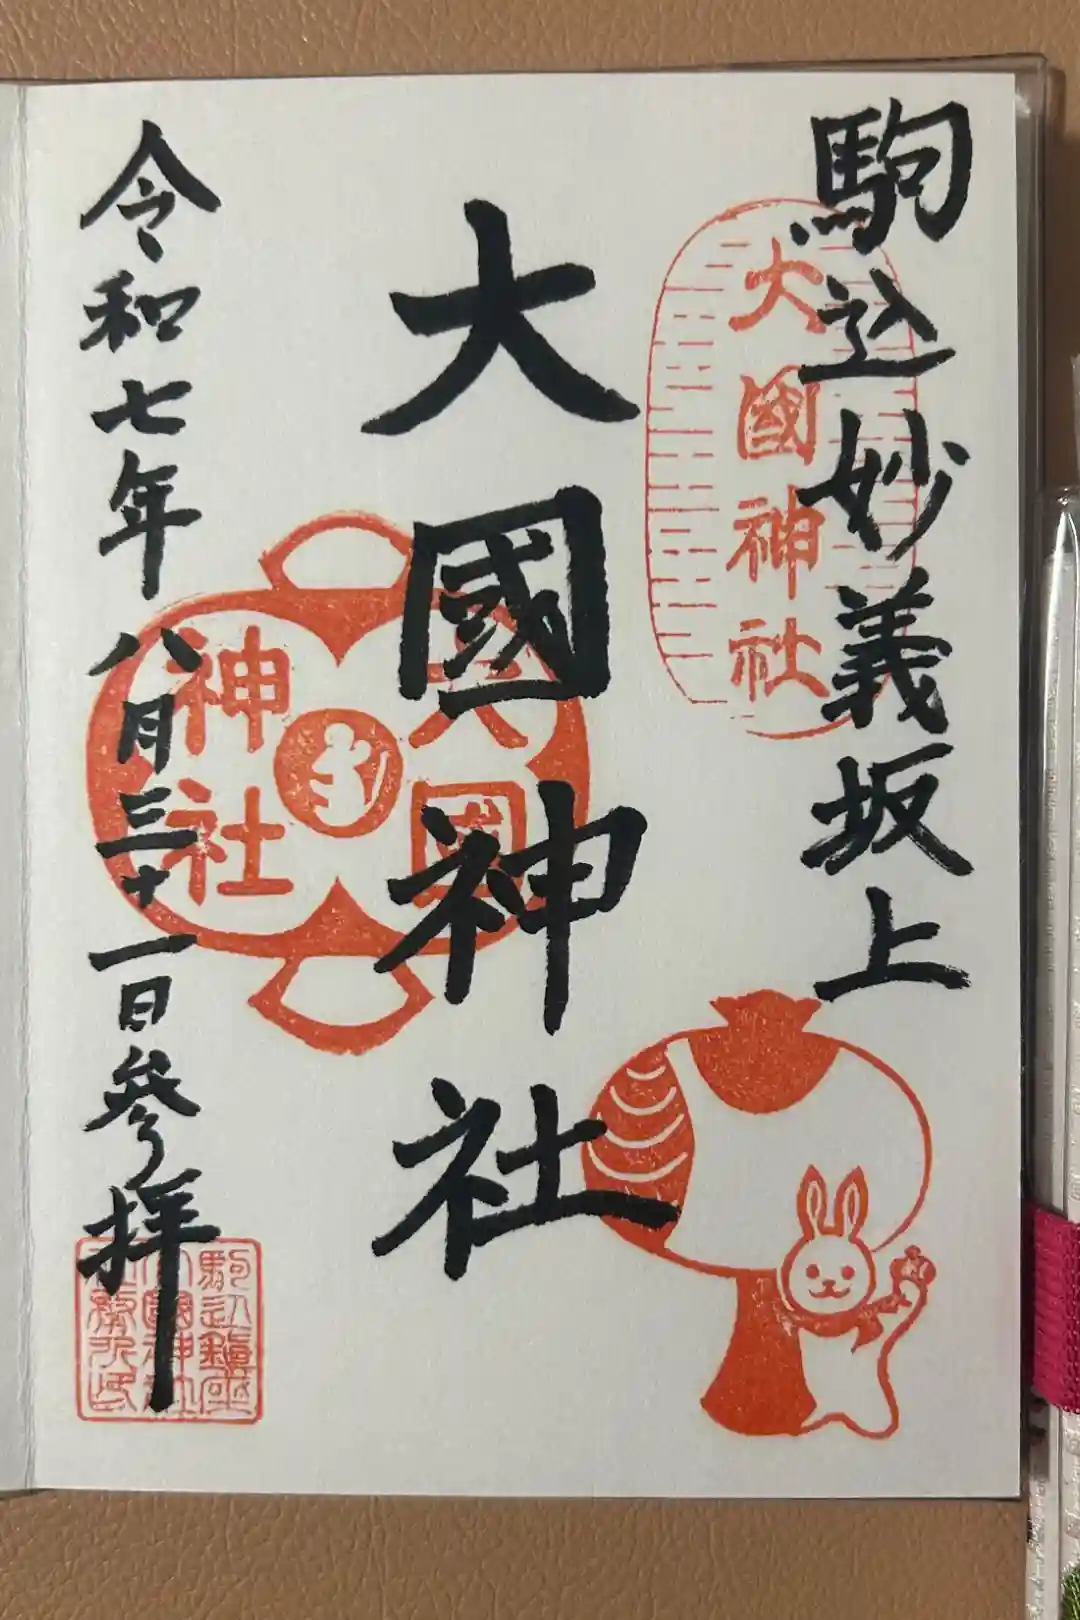 駒込妙義坂上
大國神社
大國神社
大國
神社
令和七年八月三十一日参拝
駒込鎮座
大國神社